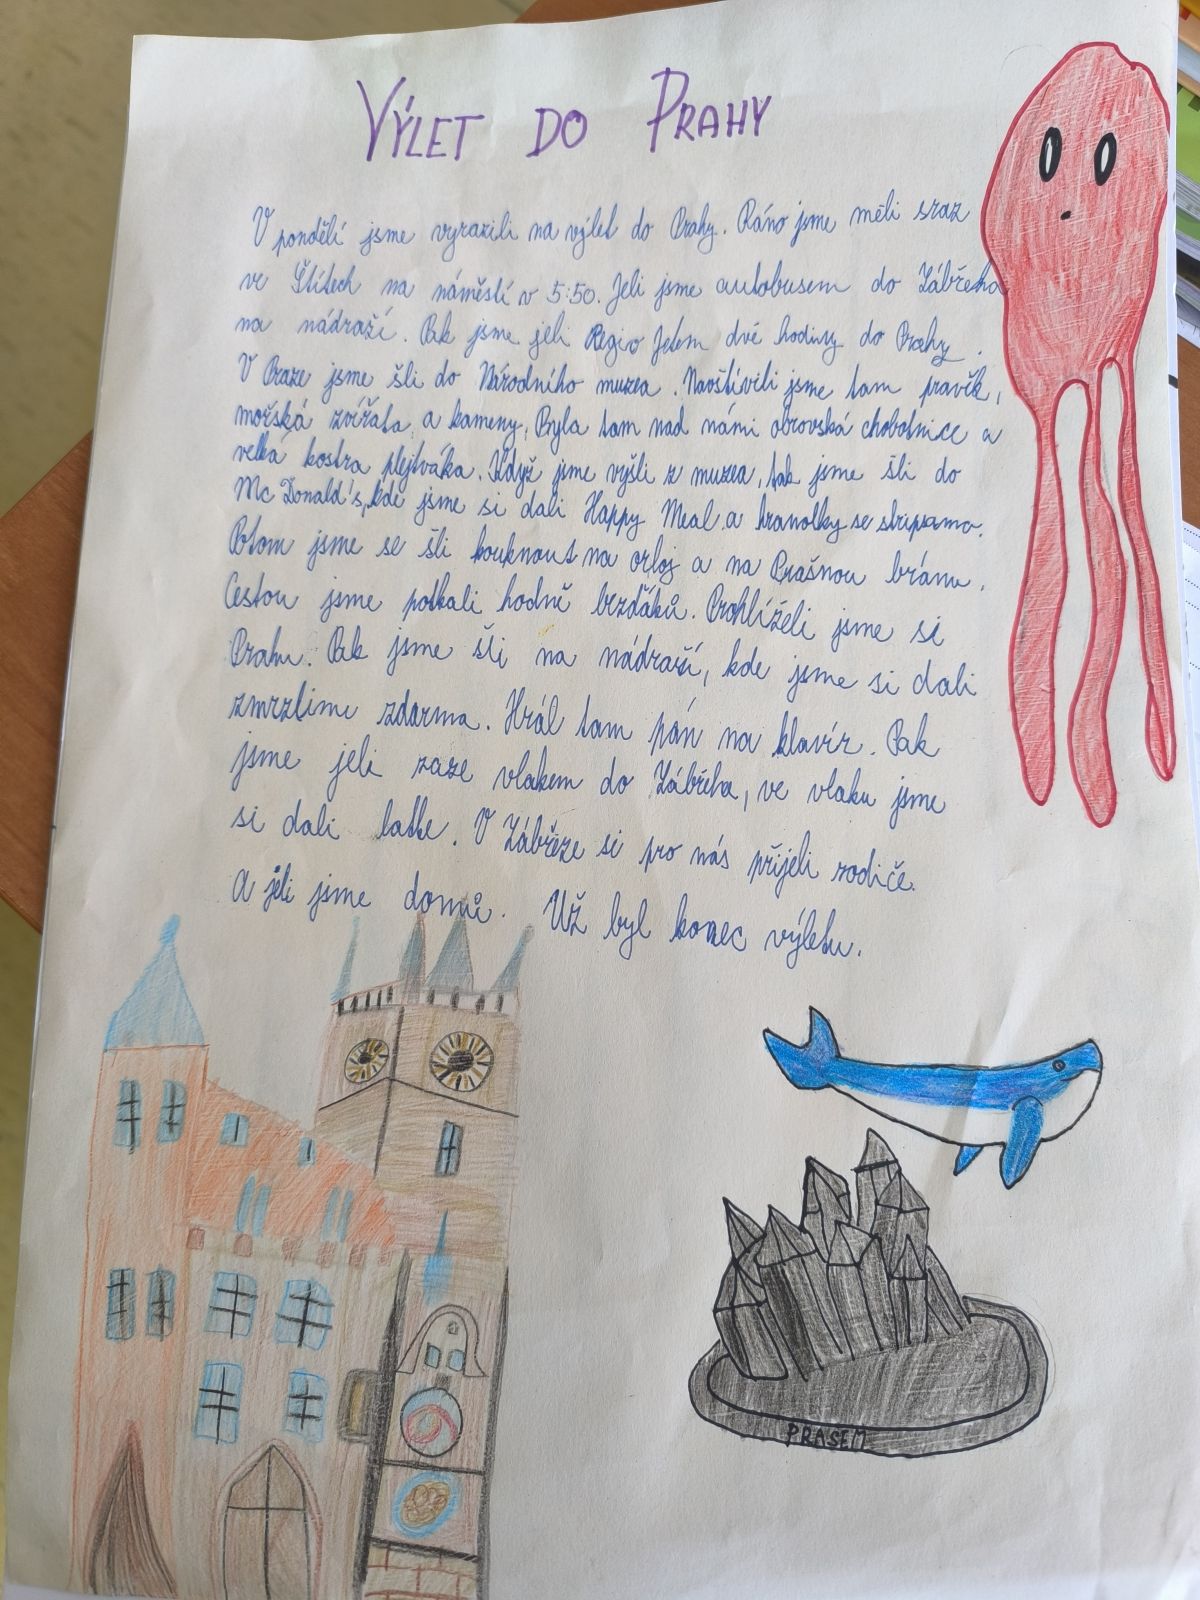 VÝLET DO PRAHY
V pondělí jsme vyrazili na výlet do Prahy. Ráno jsme měli sraz
ve Štítech na náměstí v 5:50. Jeli jsme autobusem do Zábřeha
na nádraží. Pak jsme jeli Regio Jetem dvě hodiny do Prahy.
V Praze jsme šli do Národního muzea. Navštívili jsme tam pravěk,
mořská zvířata a kameny. Byla tam nad námi obrovská chobotnice a
velká kostra plejtváka. Když jsme vyšli z muzea, tak jsme šli do
Mc Donald's, kde jsme si dali Happy Meal a hranolky se stripsama.
Potom jsme se šli kouknout na orloj a na Prašnou bránu.
Cestou jsme potkali hodně bezďáků. Prohlíželi jsme si
Prahu. Pak jsme šli na nádraží, kde jsme si dali
zmrzlinu zdarma. Hrál tam pán na klavír. Pak
jsme jeli zase vlakem do Zábřeha, ve vlaku jsme
si dali latte. V Zábřeze si pro nás přijeli rodiče.
A jeli jsme domů. Už byl konec výletu.
PRASEM